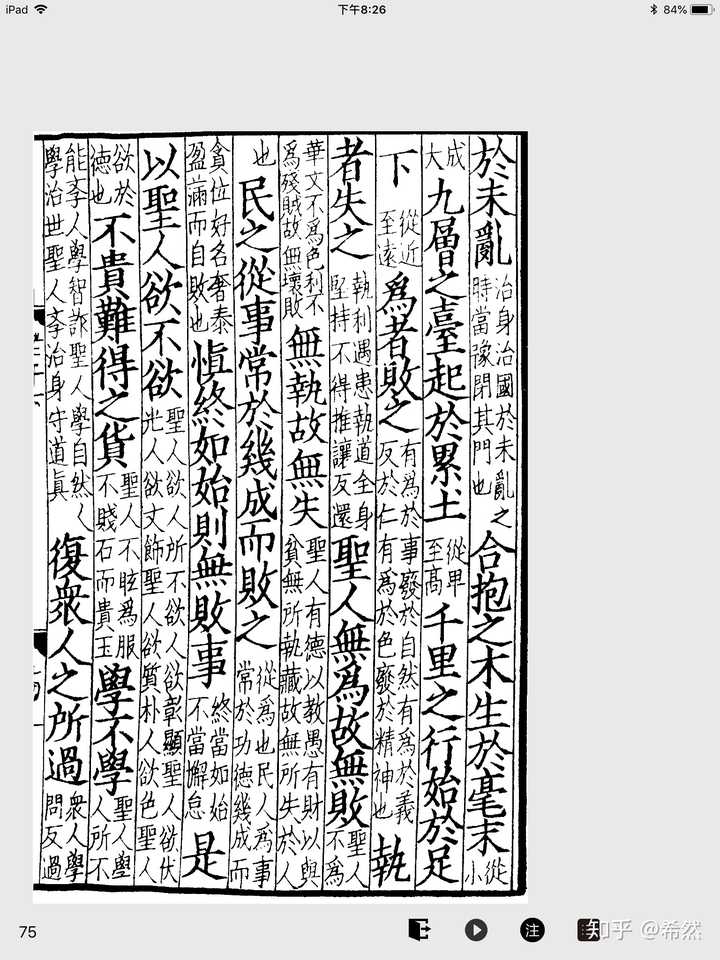 iPad
下午8:26
84%
於未亂治身治國於未亂之時當豫閉其門也合抱之木生於毫末從小
成大九層之臺起於累土從卑至高千里之行始於足
下從近至遠爲者敗之有爲於事廢於自然有爲於義反於仁有爲於色廢於精神也執
者失之執利遇患執道全身堅持不得推讓反還聖人無爲故無敗聖人不爲
華文不爲色利不爲殘賊故無壞敗無執故無失聖人有德以教愚有財以與貧無所執藏故無所失於人
也民之從事常於幾成而敗之從爲也民人爲事常於功德幾成而
貪位好名奢泰盈滿而自敗也慎終如始則無敗事終當如始不當懈怠是
以聖人欲不欲聖人欲人所不欲人欲彰顯聖人欲伏光人欲文飾聖人欲質朴人欲色聖人
欲於德也不貴難得之貨聖人不眩爲服不賤石而貴玉學不學聖人學人所不
能斈人學智詐聖人學自然人學治世聖人斈治身守道眞復衆人之所過衆人學問反過
75
注
知乎 @希然